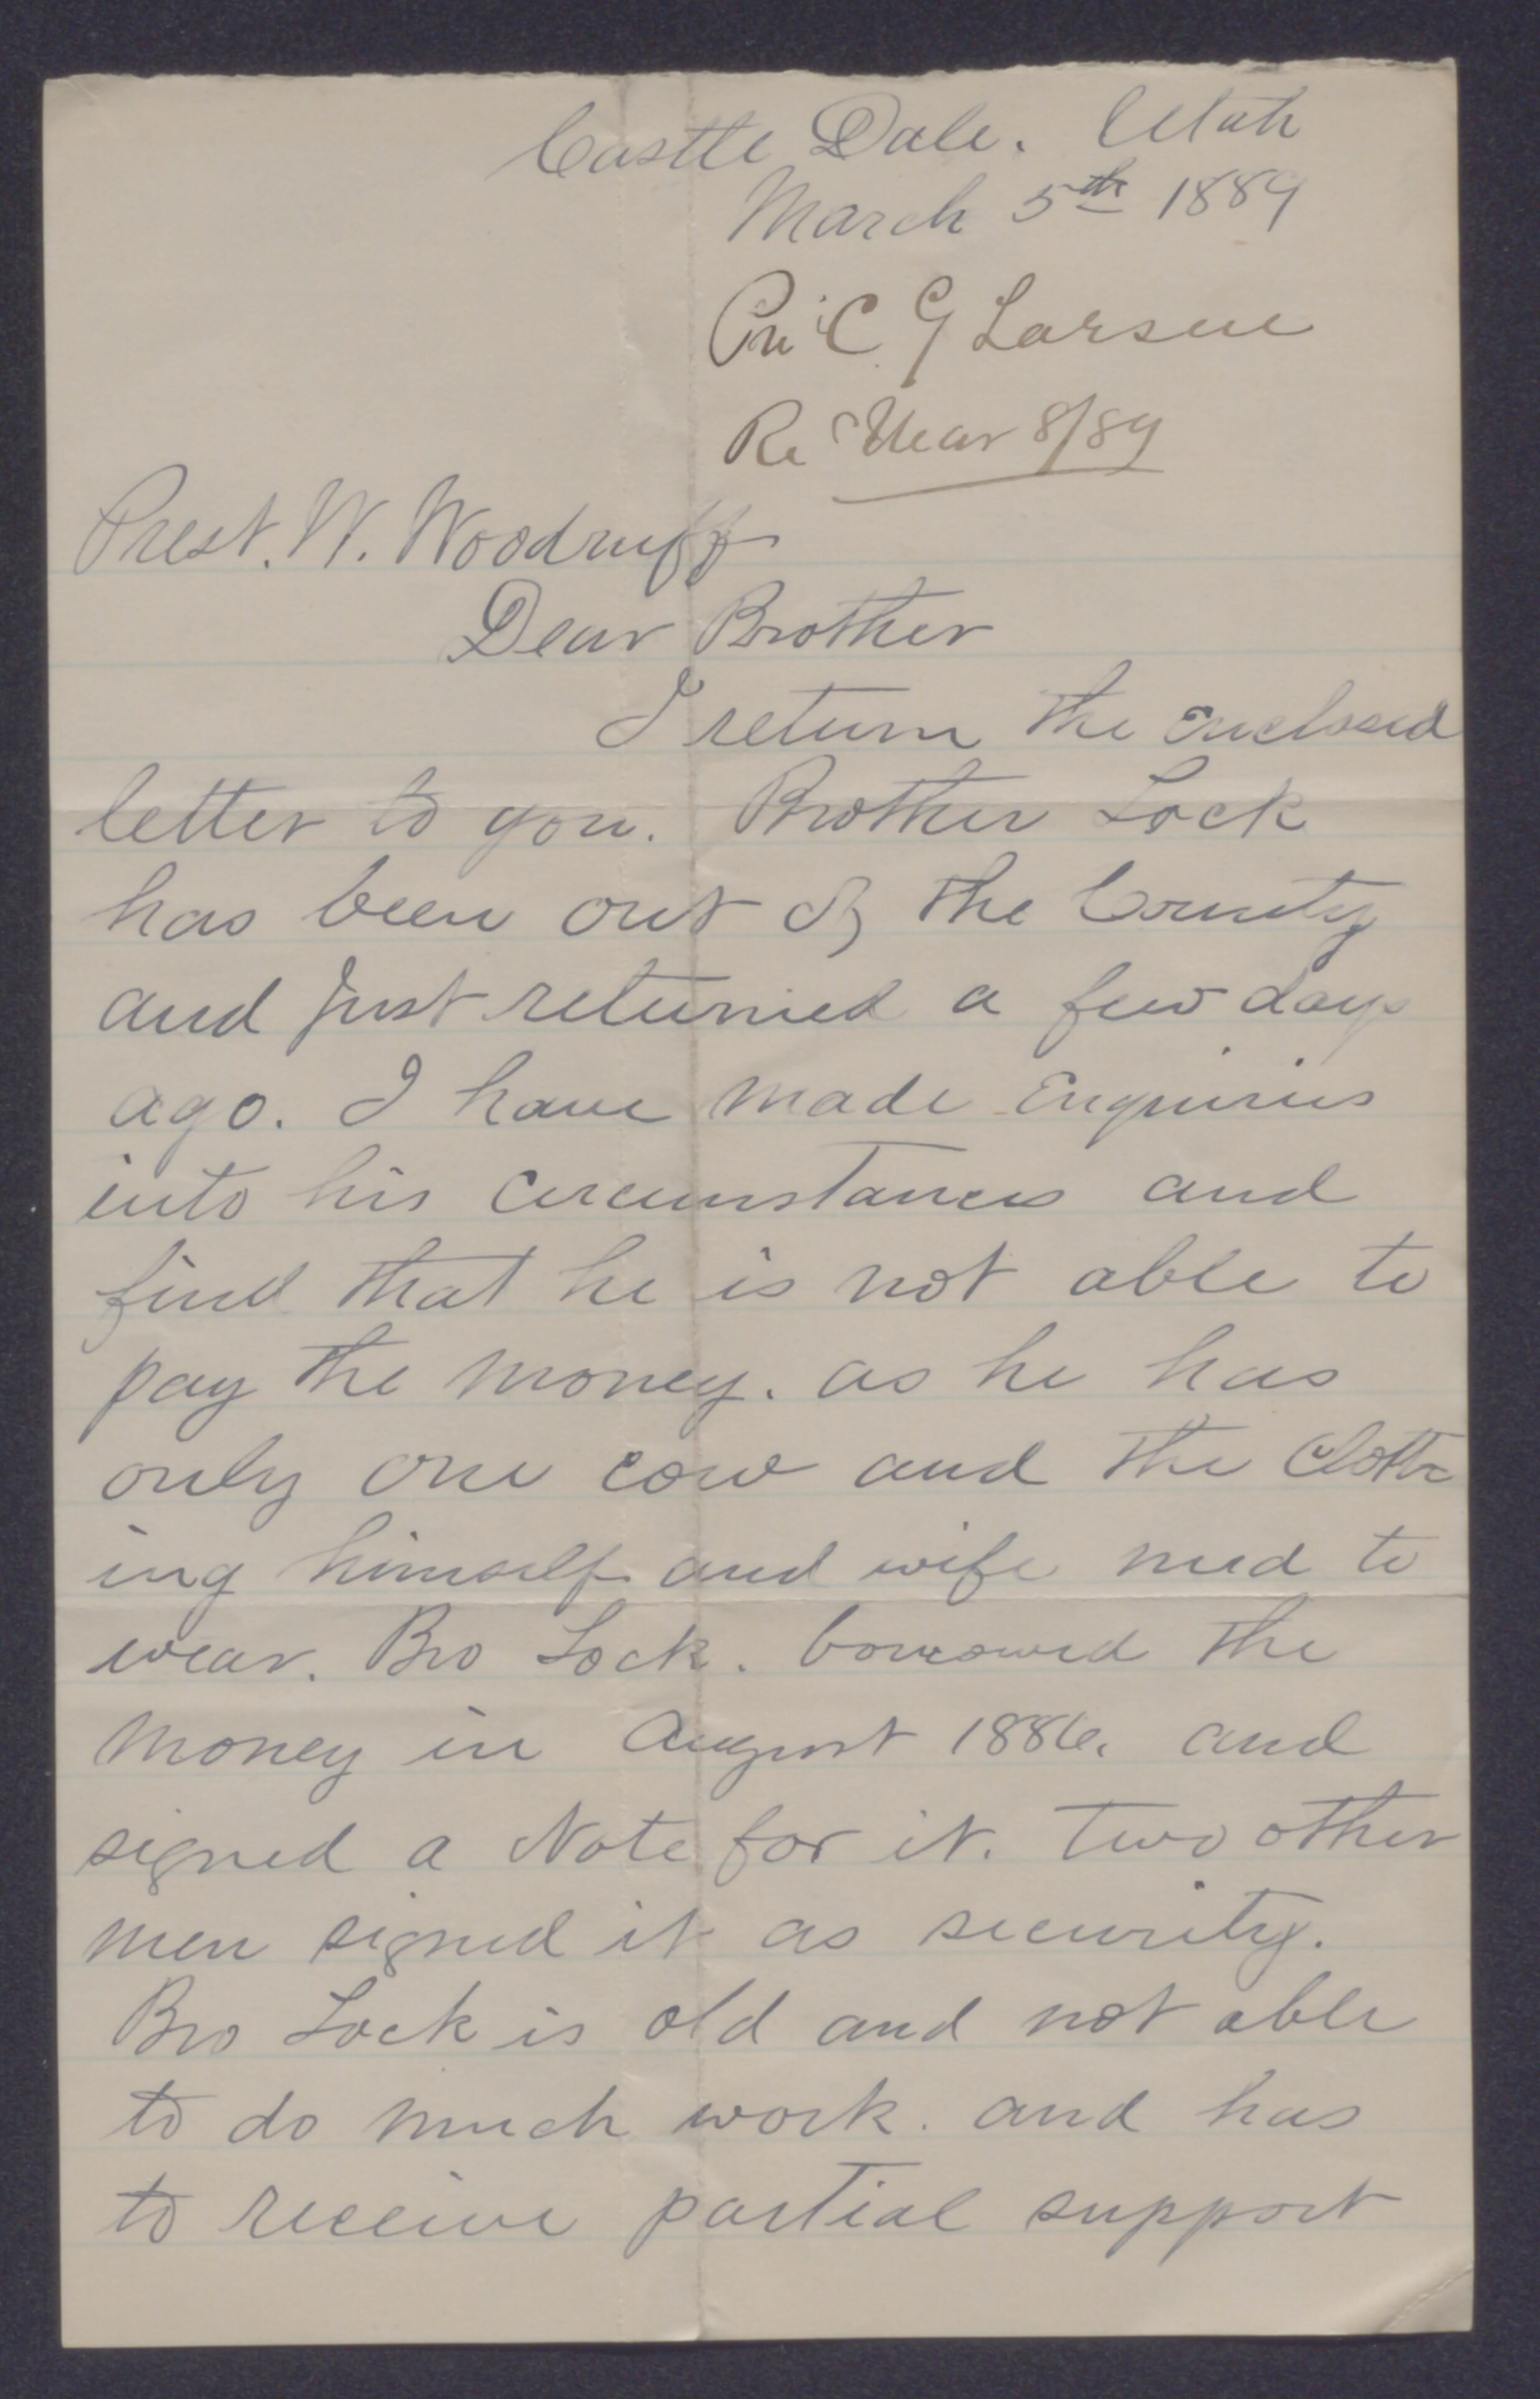 Castle Dale. Utah
March 5th 1889
C G Larsen
Re Mar 8/89
Prest. W. Woodruff
Dear Brother
I return the enclosed
letter to you. Brother Lock
has been out of the County
and just returned a few days
ago. I have made Enquiries
into his circumstances and
find that he is not able to
pay the money. as he has
only one cow and the Cloth
ing himself and wife need to
wear. Bro Lock. borrowed the
money in August 1886. and
signed a Note for it. two other
men signed it as security.
Bro Lock is old and not able
to do much work. and has
to receive partial support